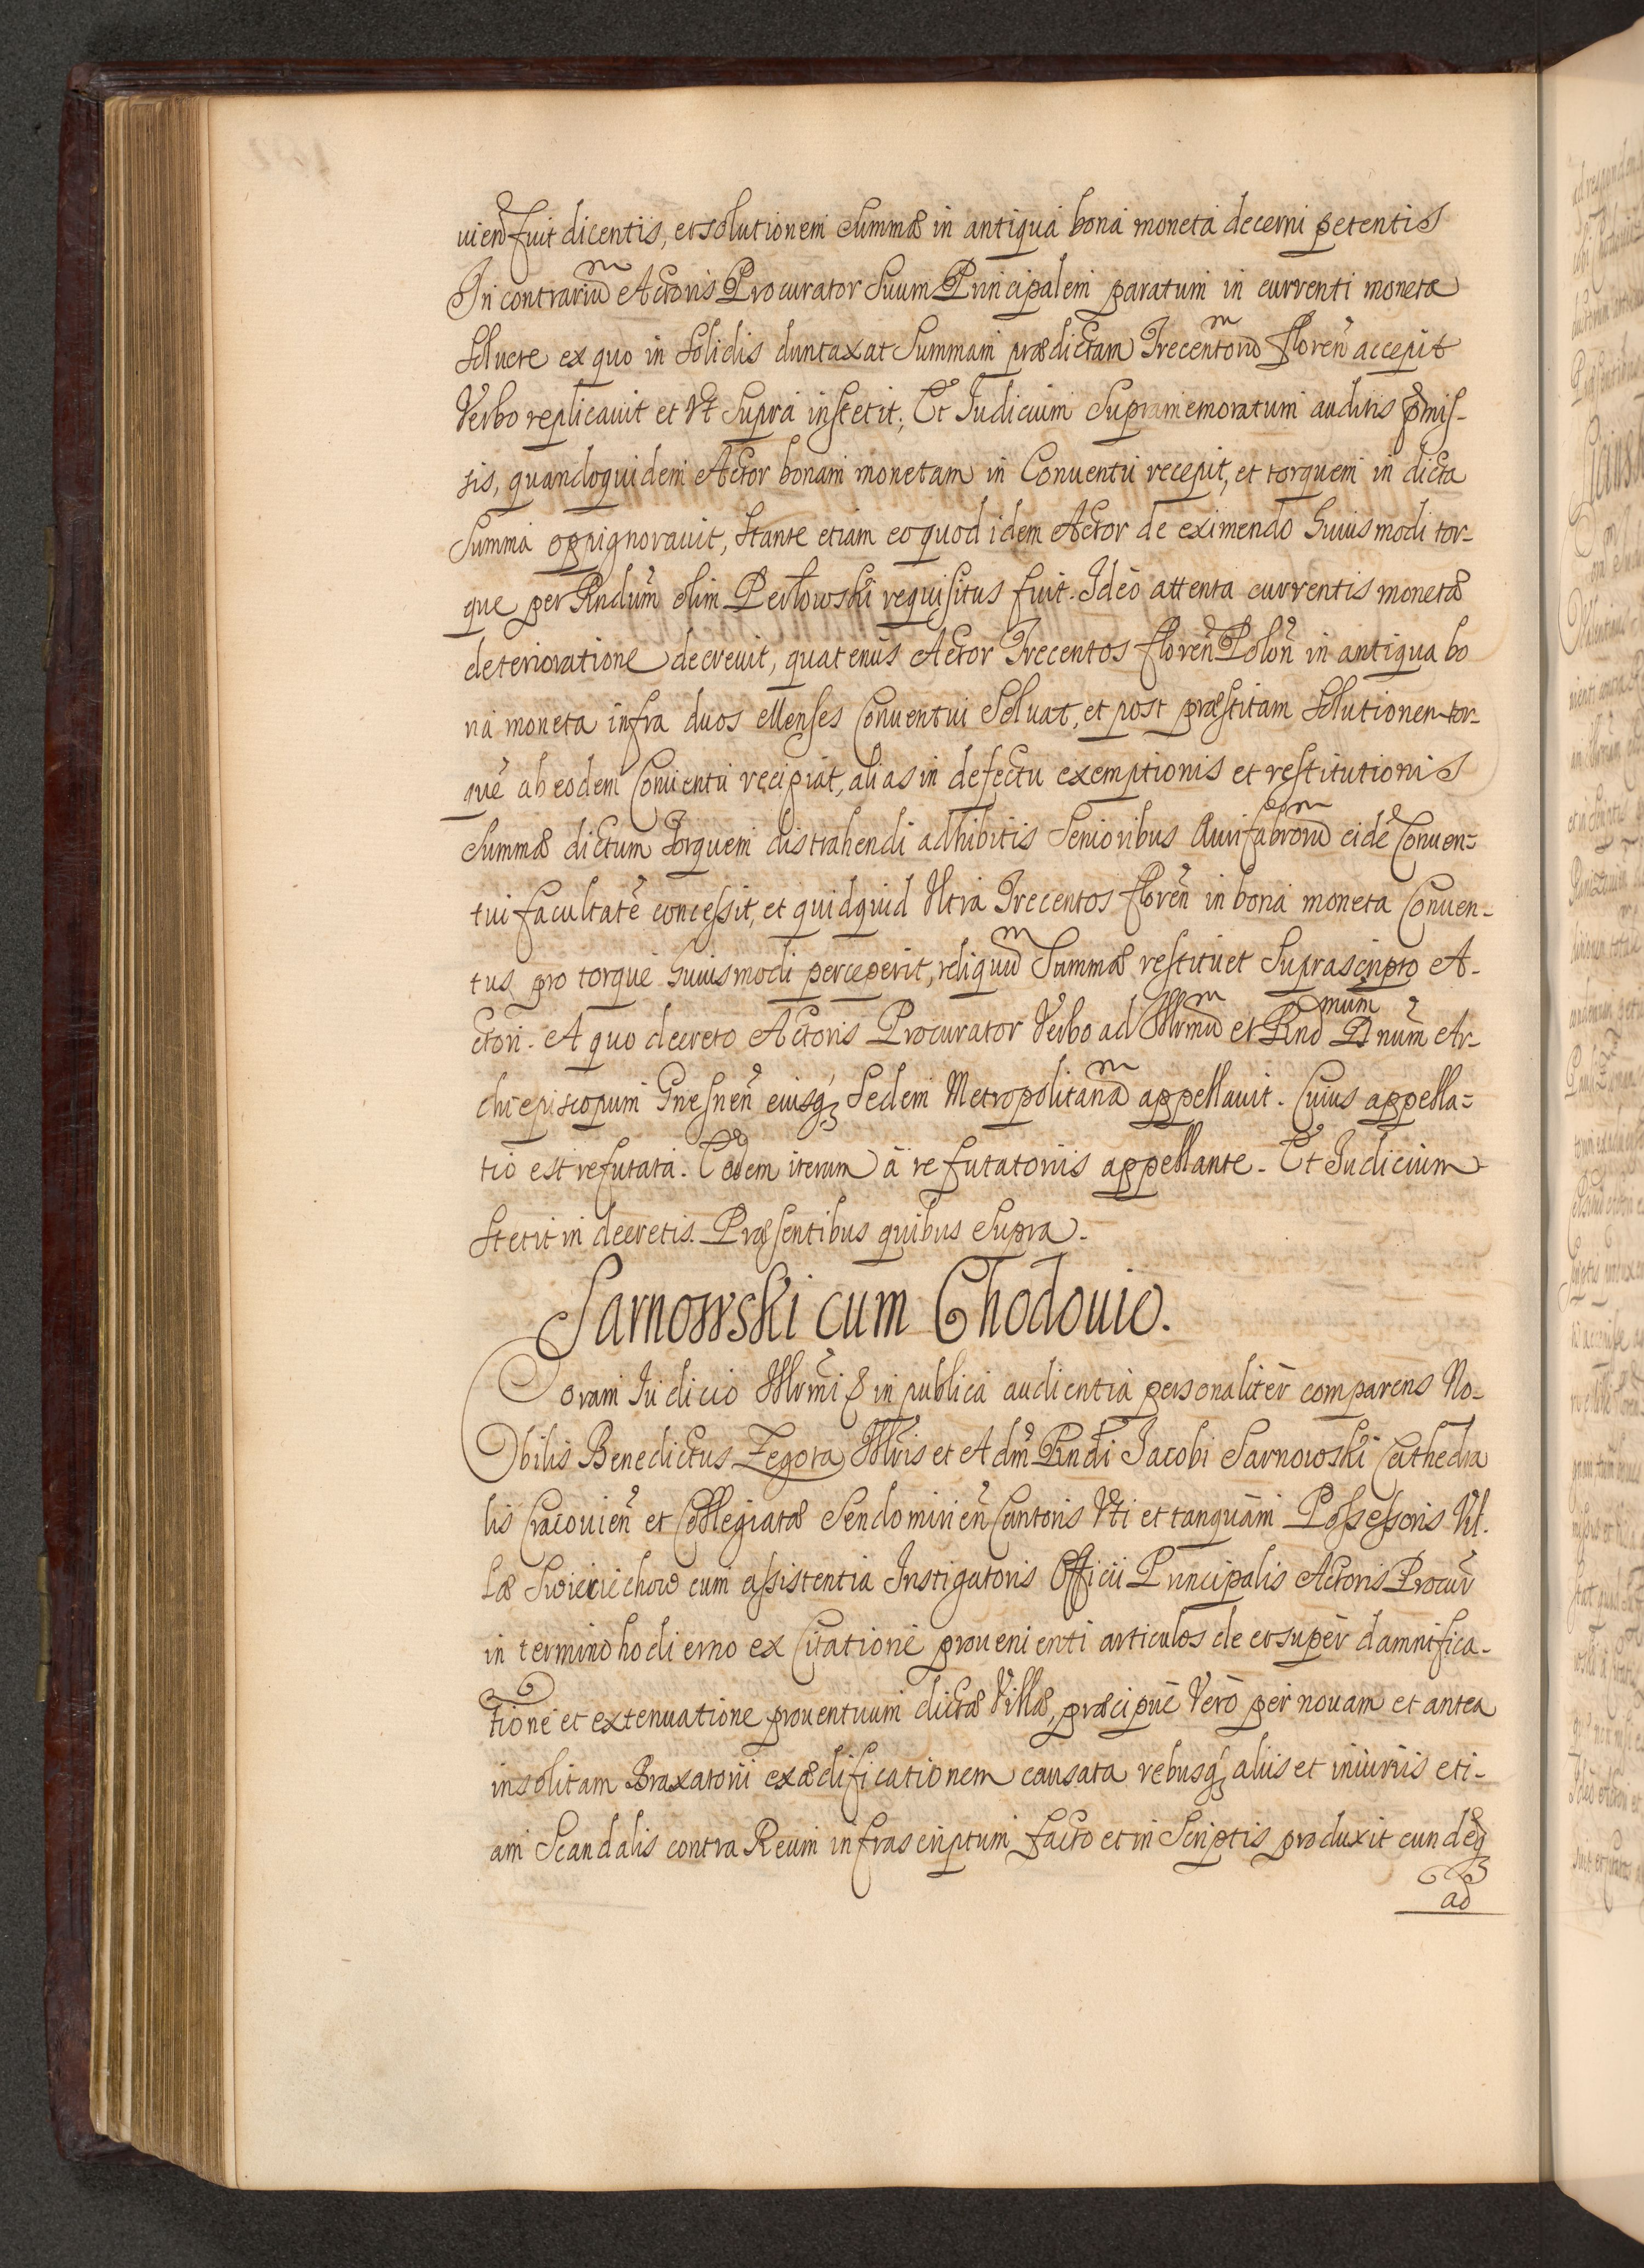 uien fuit dicentis, et solutionem Summæ in antiqua bona moneta decerni petentis
In contrariũ Actoris Procurator Suum Principalem paratum in currenti moneta
Soluere ex quo in Solidis duntaxat Summam prædictam Trecentorũ floreñ accepit
Verbo replicauit et Vt Supra institit; Et Iudicium Supramemoratum auditis p̃mis-
sis, quandoquidem Actor bonam monetam in Conuentu recepit, et torquem in dicta
Summa oppignorauit, Stante etiam eo quod idem Actor de eximendo huiusmodi tor-
que per Rndum̃ olim Perlowski requisitus fuit. Ideo attenta currentis monetæ
deterioratione decreuit, quatenus Actor Trecentos floreñ Poloñ in antiqua bo
na moneta infra duos Menses Conuentui Soluat, et post præstitam Solutionem tor-
quẽ ab eodem Conuentu recipiat, alias in defectu exemptionis et restitutionis
Summæ dictum Torquem distrahendi adhibitis Senioribus Aurifabrorũ eidẽ Conuen-
tui facultatẽ concessit, et quidquid Vltra Trecentos floreñ in bona moneta Conuen-
tus pro torque huiusmodi perceperit, reliquũ Summæ restituet Suprascripto A-
ctori. A quo decreto Actoris Procurator Verbo ad Illrmũ et Rndmum D num̃ Ar-
chiepiscopum Gnesneñ eiusq3 Sedem Metropolitanã appellauit. Cuius appella-
tio est refutata. Eodem iterum à refutatoriis appellante. Et Iudicium
Stetit in decretis. Præsentibus quibus Supra.
Sarnowski cum Chodouio.
Coram Iudicio Illrmi & in publica audientia personaliter comparens No-
bilis Benedictus Zegota Illris et Adm̃ Rndi Jacobi Sarnowski Cathedra
lis Cracouieñ et Collegiatæ Sendomirieñ Cantoris Vti et tanquam Possessoris Vil-
læ Swiecichow cum assistentia Instigatoris Officii Principalis Actoris Procur̃
in termino hodierno ex Citatione prouenienti articulos de et super damnifica-
tione et extenuatione prouentuum dictæ Villæ, præcipuè Verò per nouam et antea
insolitam Braxatorii exædificationem causata rebusq3 aliis et iniuriis eti-
am Scandalis contra Reum infrascriptum facto et in Scriptis produxit eundẽq3
ad